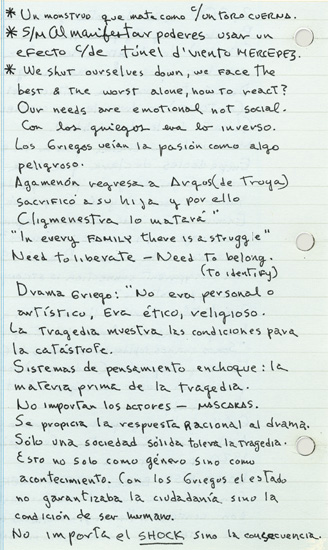 * Un monstruo que mata como c/un TORO CUERNA.
* S/M Al manifestar poderes usar un
efecto c/de túnel d'viento MERCEPEZ.
* We shut ourselves down, we face the
best & the worst alone, how to react?
Our needs are emotional not social.
Con los griegos era lo inverso.
Los Griegos veían la pasión como algo
peligroso.
Agamenón regresa a Argos (de Troya)
sacrificó a su hija y por ello
Cligmenestra lo matará"
"In every FAMILY there is a struggle"
Need to liberate - Need to belong.
(to identify)
Drama Griego: "No era personal o
artístico, Era ético, religioso.
La Tragedia muestra las condiciones para
la catástrofe.
Sistemas de pensamiento enchoque: la
materia prima de la tragedia.
No importan los actores - MASCARAS.
Se propicia la respuesta Racional al drama.
Sólo una sociedad sólida tolera la tragedia.
Esto no solo como género sino como
acontecimiento. Con los Griegos el estado
no garantizaba la ciudadanía sino la
condición de ser humano.
No importa el SHOCK sino la consecuencia.